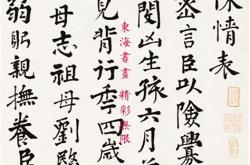 情表
密言臣以險釁
閔凶生孩六月
見背行秊四歲
母志祖母劉愍
弱躬親撫養臣
東海書畫 精彩無限